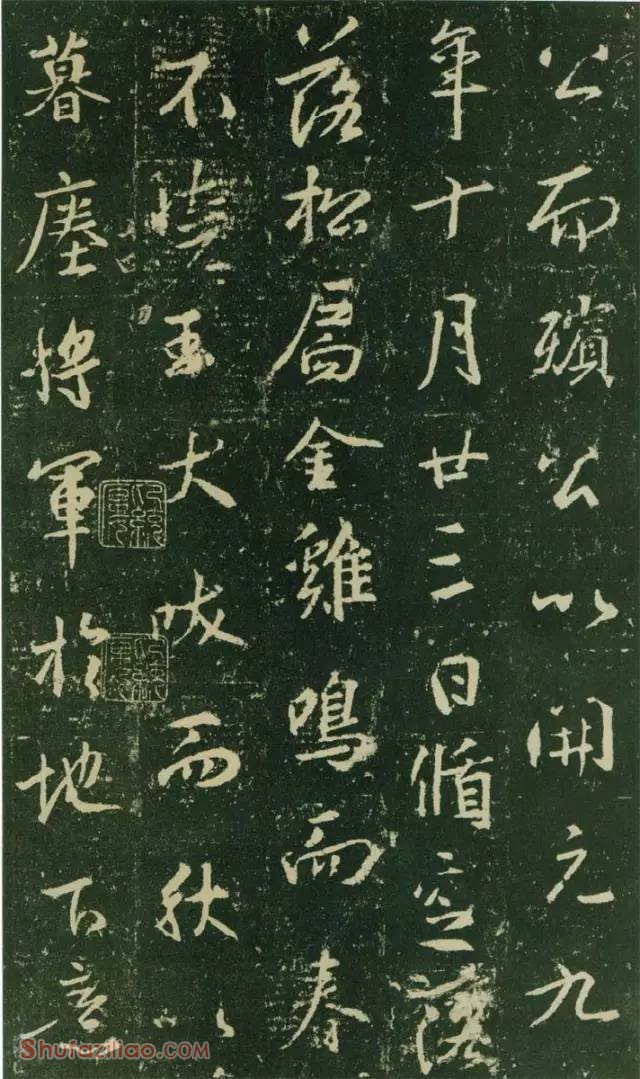 公而殯公以開元九
年十月廿三日循空落
落松扃金雞鳴而春
不曉玉犬吠而秋以
暮將軍於地下
Shufaziliao.com